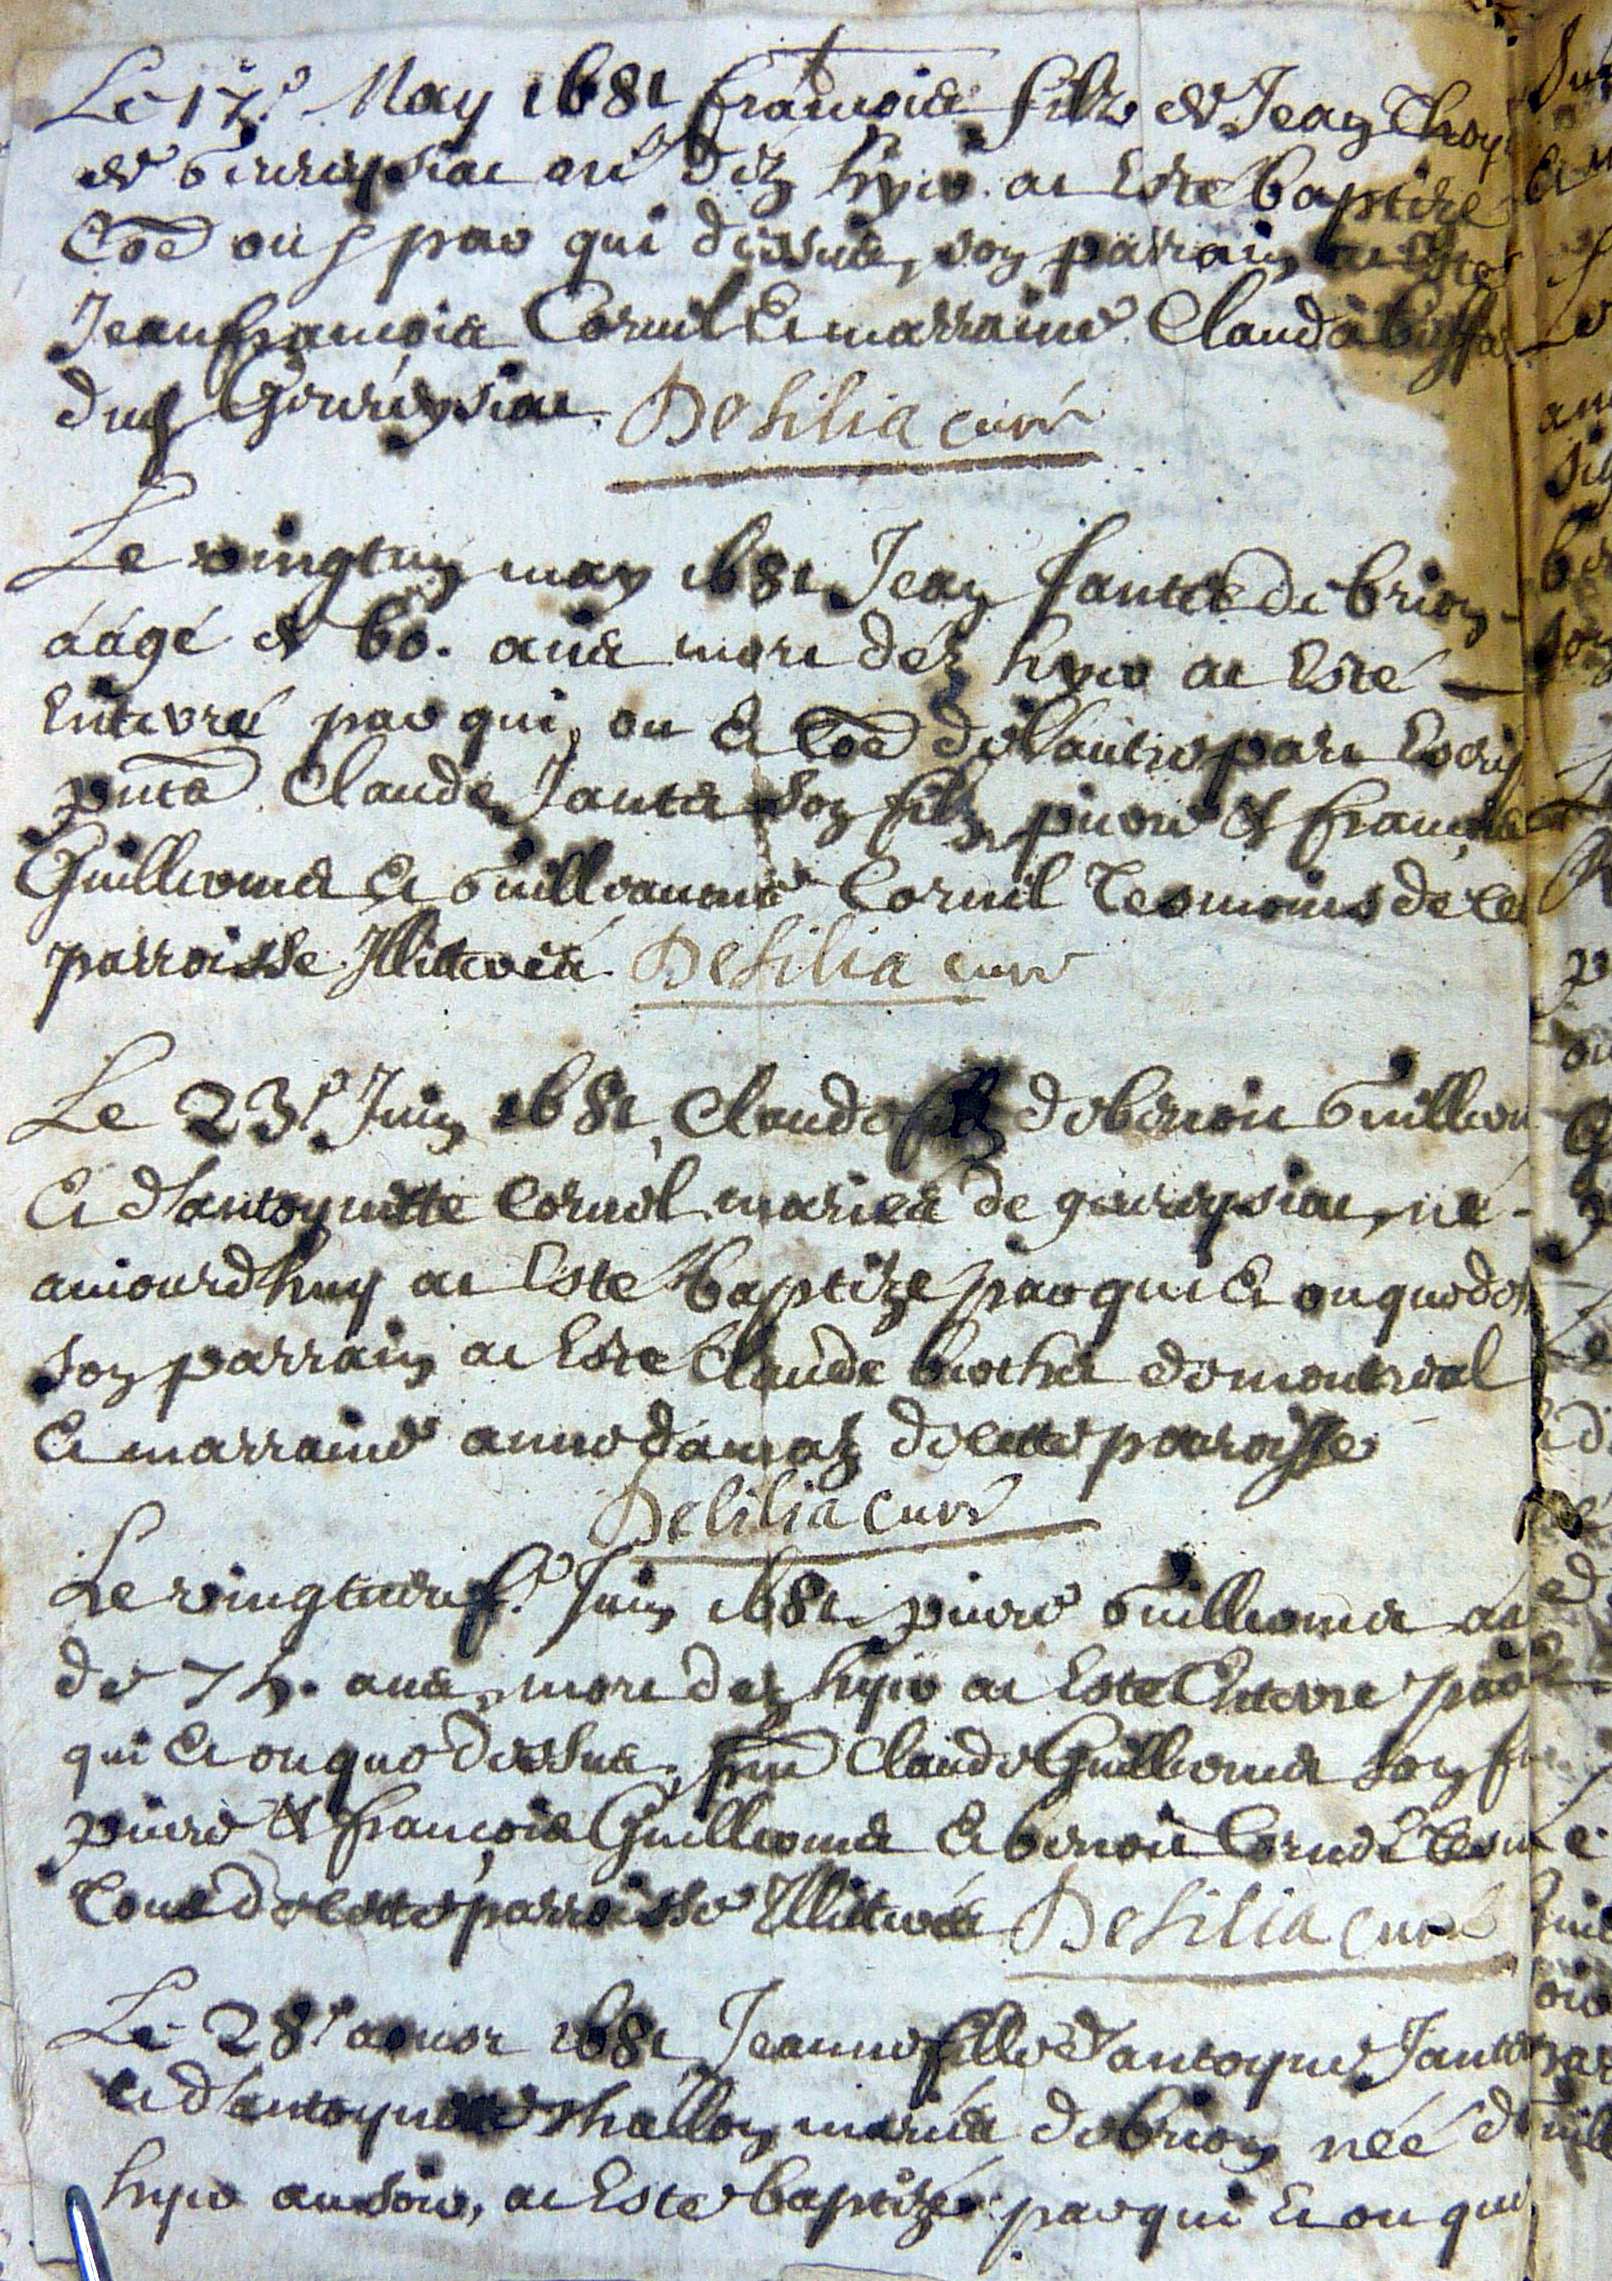 Le 17.e May 1681 françois filz de Jean Thoy
de Geovreyssiat né dèz hyer at Esté baptizé
Coe ou & par qui dessus, son parrain at Esté
Jeanfrançois Cornil Et marraine Clauda
dud Geovreyssiat Delilia curé
Le vingtun may 1681 Jean Jantet de brion
áâgé de 60. ans mort déz hyer at Esté
Enterré par qui, ou Et Coe de lautre part Escrit
pnts Claude Jantet son filz, pierre & françois
Guillermet Et Guillaume Cornil Tesmoins de
parroisse Illitterés Delilia curé
Le 23.e Juin 1681, Claude filz de benoit Guillerm
Et d'antoynette Cornil mariés de geovreyssiat, né
aujourdhuy at Esté baptizé par qui Et ou que des
son parrain at Esté Claude brochet de montreal
Et marraine anne damaz de cette parroisse
Delilia Curé
Le vingtneuf.e Juin 1681 pierre Guillermet
de 75. ans, mort dez hyer at Esté Enterré par
qui Et ou que dessus, pnt Claude Guillermet son fi
pierre & françois Guillermet Et benoit Cornil Tesm
Tous de cette parroisse Illitterés Delilia curé
Le 28.e aoust 1681 Jeanne fille d'antoyne Jantet
Et d'antoynette Thallon mariés de brion néé d
hyer au soir, at Esté baptizée par qui Et ou que